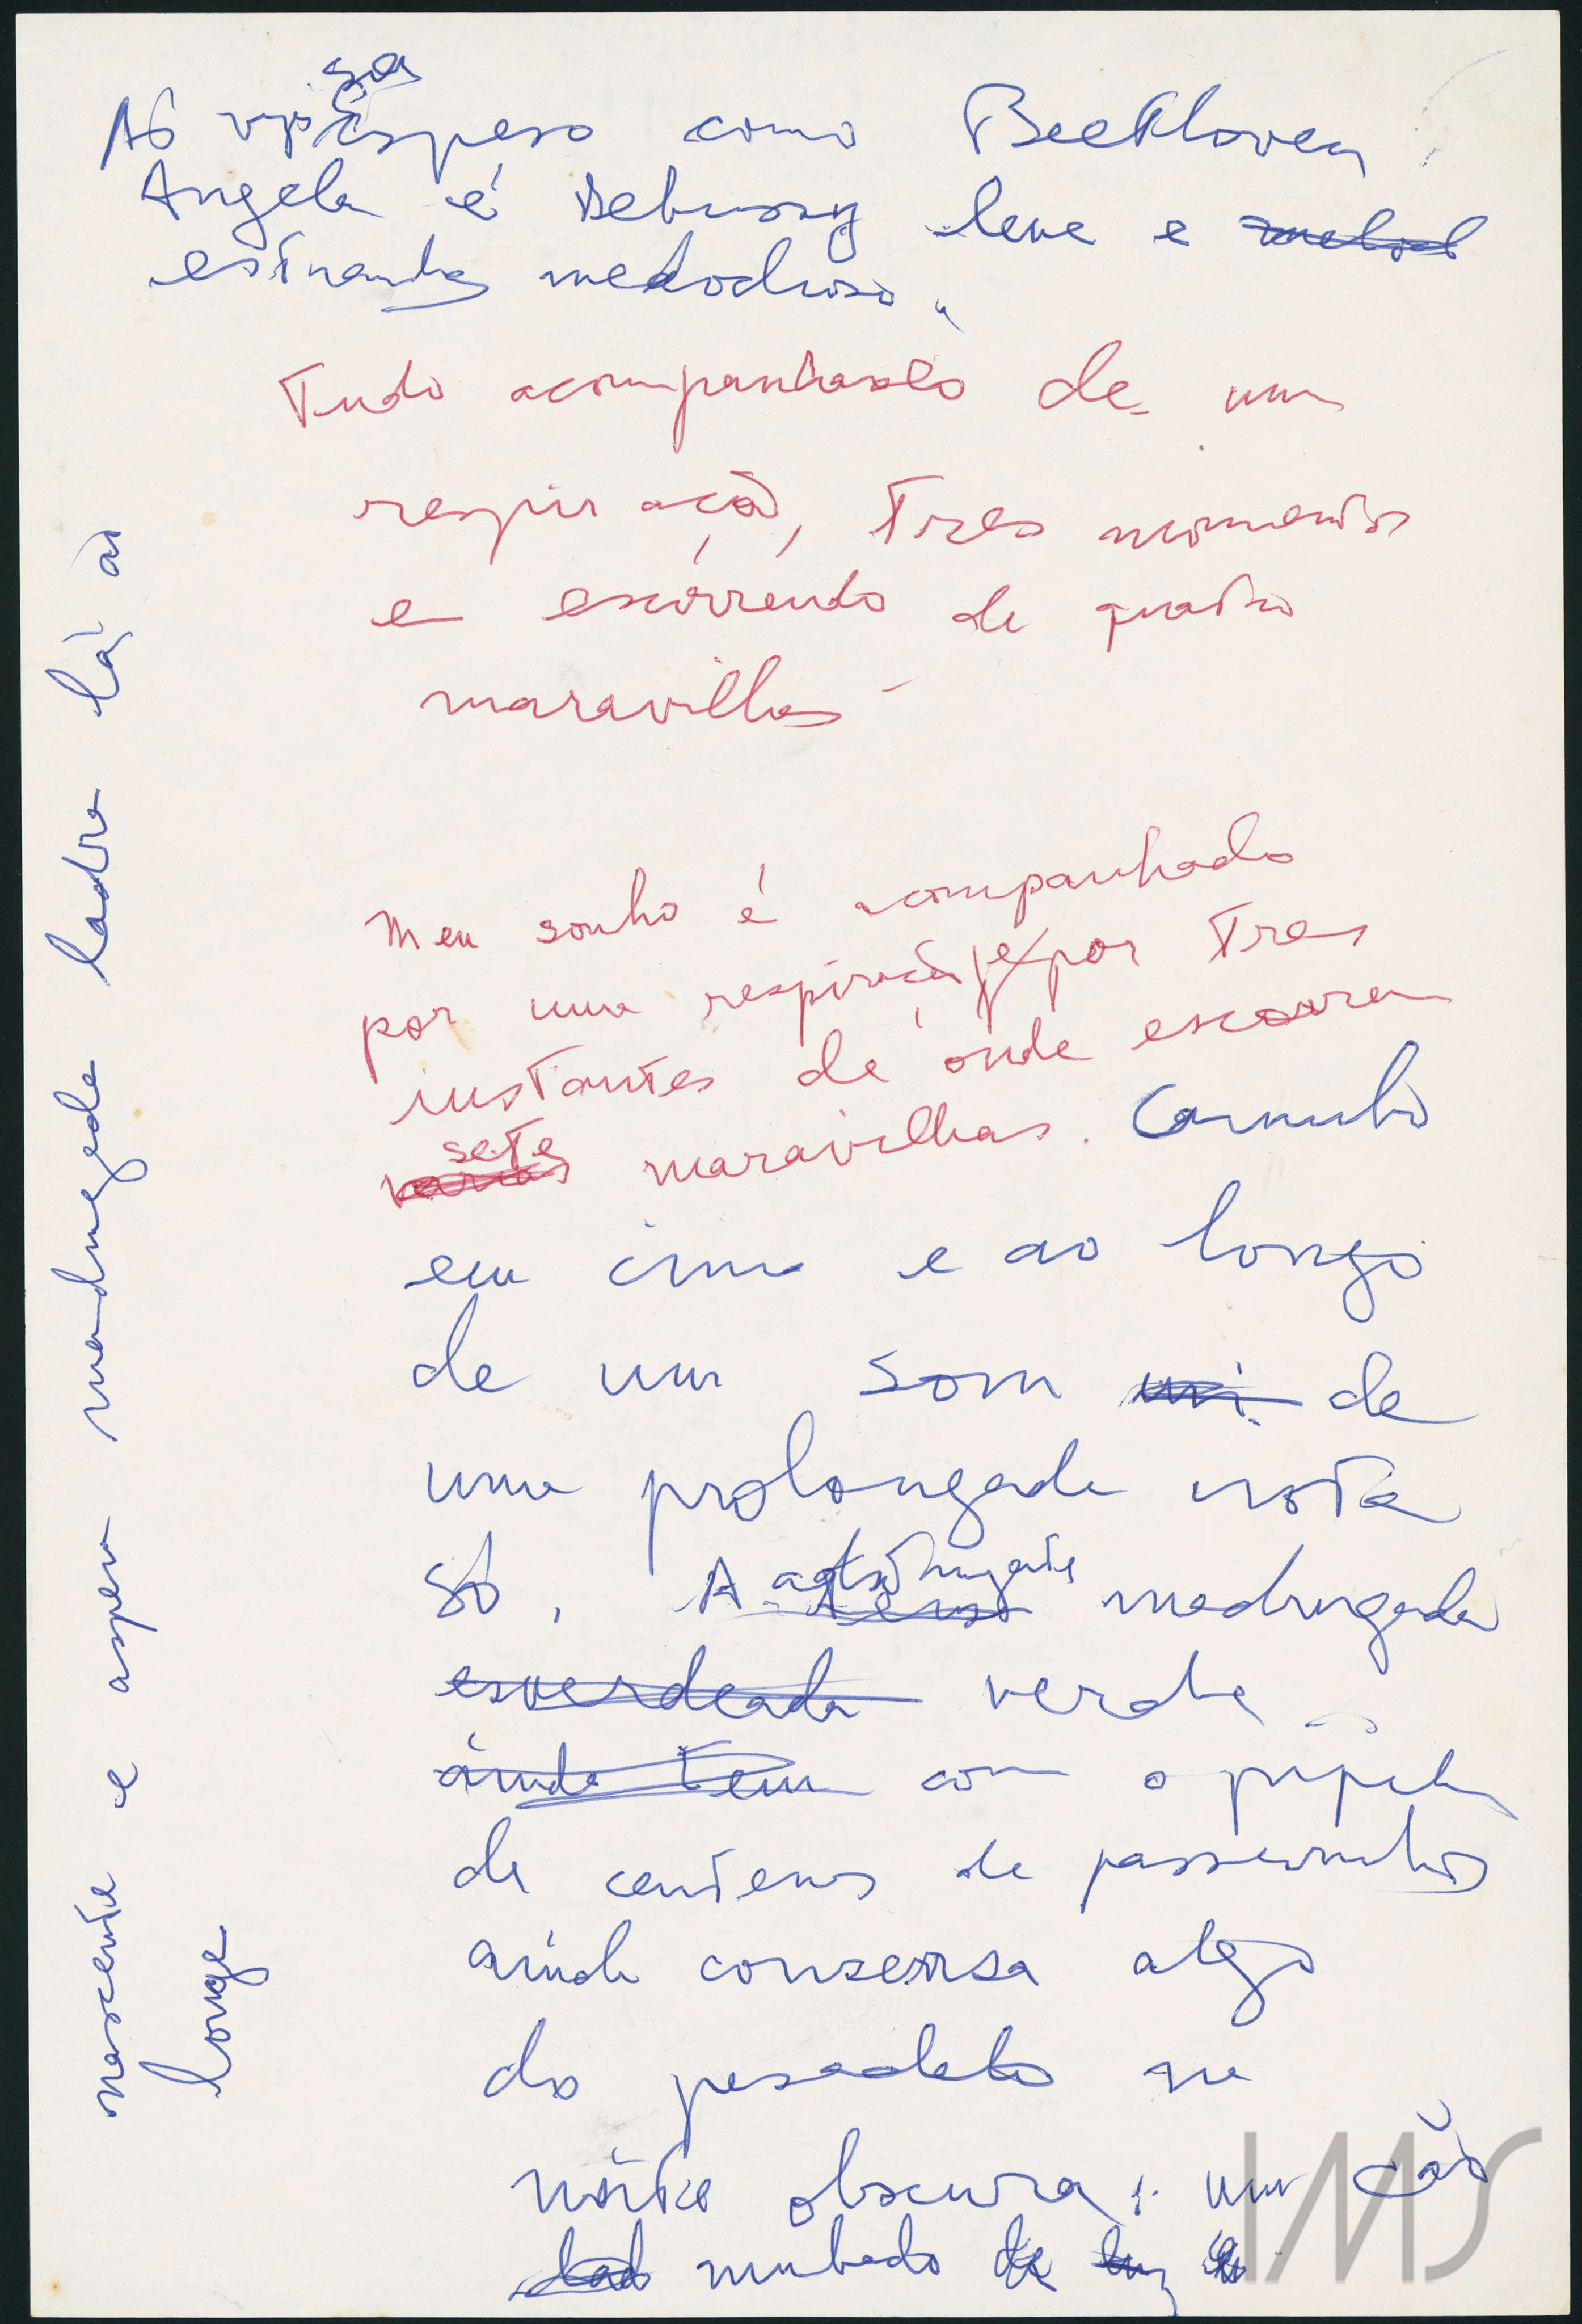 sa
espeso como Beethoven
Angela é Debussy leve e
estranho melodioso.
Tudo acompanhado de um
respiração, tres momentos
e escorrendo de quatro
maravilhas -
Meu sonho é acompanhado
por uma respiração e por tres
instantes de onde escorrem
sete
varias maravilhas. Caminho
em cima e ao longo
de um som de
uma prolongada nota
só. A madrugada
esverdeada verde
ainda tem com o
de centenas de passarinhos
ainda conserva algo
do pesadelo na
noite obscura: um cão
de luz
nascente e madrugada ladra lá ao
longe
IMS